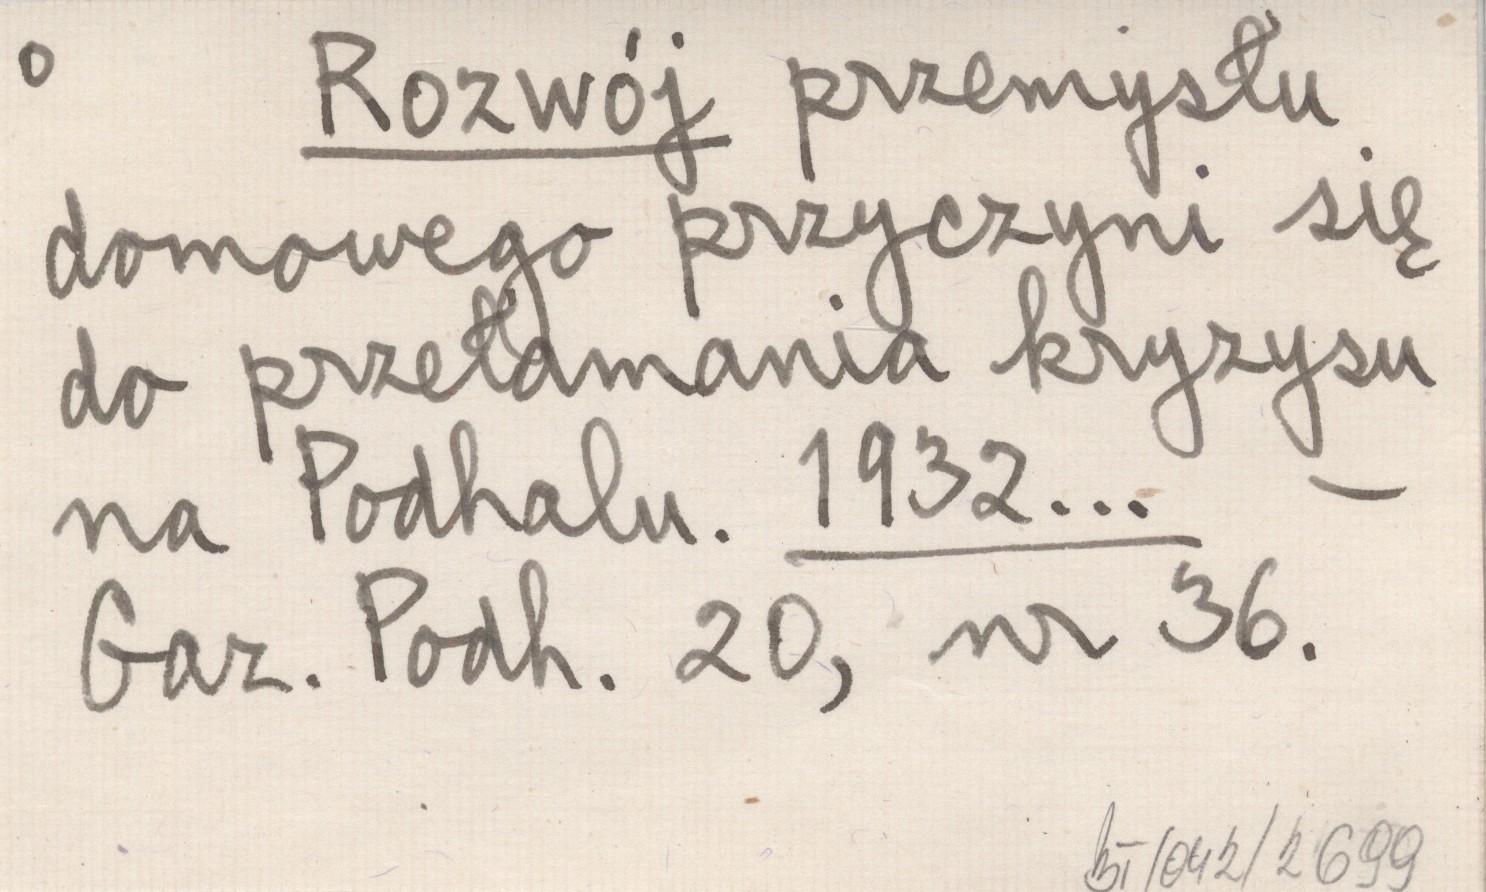 o Rozwój przemysłu
domowego przyczyni się
do przełamania kryzysu
na Podhalu. 1932... –
Gaz. Podh. 20, nr 36.
BI/042/2699